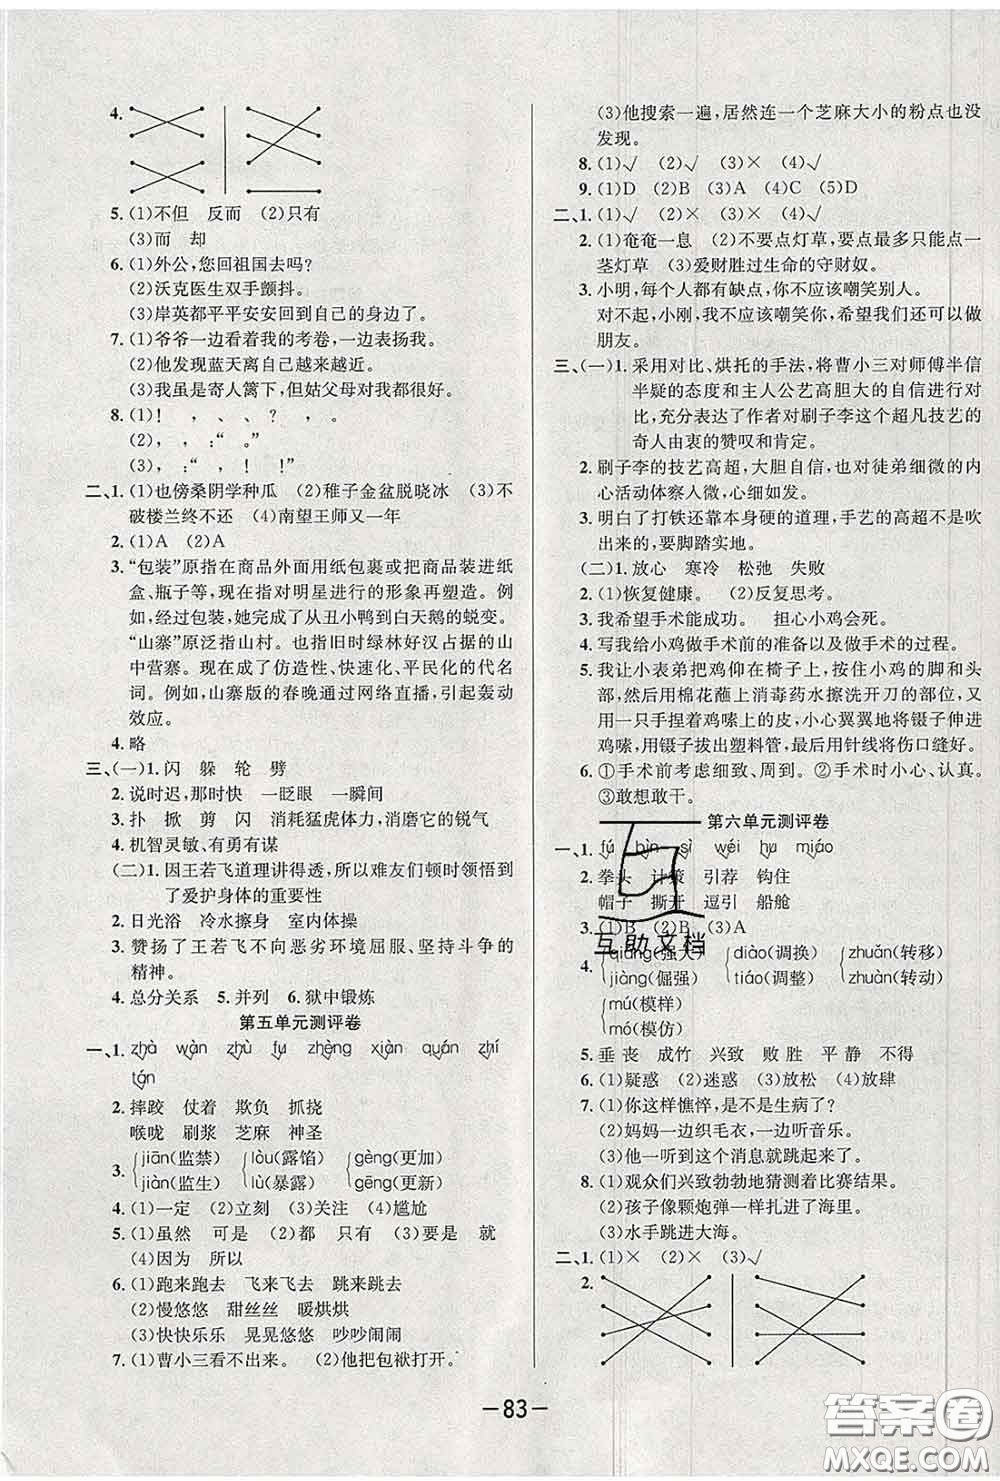 4.
5. (1)不但 反而 (2)只有
(3)而 却
6. (1)外公,您回祖国去吗?
(2)沃克医生双手颤抖。
(3)岸英都平平安安回到自己的身边了。
7. (1)爷爷一边看着我的考卷,一边表扬我。
(2)他发现蓝天离自己越来越近。
(3)我虽是寄人篱下,但姑父母对我很好。
8. (1)! , 、 、 ? , 。
(2), ,:“ 。”
(3),:“ , ! !”
二、1. (1)也傍桑阴学种瓜 (2)稚子金盆脱晓冰 (3)不
破楼兰终不还 (4)南望王师又一年
2. (1)A (2)A
3. “包装”原指在商品外面用纸包裹或把商品装进纸
盒、瓶子等,现在指对明星的形象再塑造。例
如,经过包装,她完成了从丑小鸭到白天鹅的蜕变。
“山寨”原泛指山村。也指旧时绿林好汉占据的山
中营寨。现在成了仿造性、快速化、平民化的代名
词。例如,山寨版的春晚通过网络直播,引起轰动
效应。
4. 略
三、(一)1. 闪 躲 轮 劈
2. 说时迟,那时快 一眨眼 一瞬间
3. 扑 掀 剪 闪 消耗猛虎体力,消磨它的锐气
4. 机智灵敏、有勇有谋
(二)1. 因王若飞道理讲得透,所以难友们顿时领悟到
了爱护身体的重要性
2. 日光浴 冷水擦身 室内体操
3. 赞扬了王若飞不向恶劣环境屈服、坚持斗争的
精神。
4. 总分关系 5. 并列 6. 狱中锻炼
第五单元测评卷
一、1. zhà wàn zhù fu zhèng xiàn quán zhí
tán
2. 摔跤 仗着 欺负 抓挠
喉咙 刷浆 芝麻 神圣
3. jiān(监禁) lòu(露馅) gèng(更加)
jiàn(监生) lù(暴露) gēng(更新)
4. (1)一定 (2)立刻 (3)关注 (4)尴尬
5. (1)虽然 可是 (2)都 只有 (3)要是 就
(4)因为 所以
6. (1)跑来跑去 飞来飞去 跳来跳去
(2)慢悠悠 甜丝丝 暖烘烘
(3)快快乐乐 晃晃悠悠 吵吵闹闹
7. (1)曹小三看不出来。 (2)他把包袱打开。
(3)他搜索一遍,居然连一个芝麻大小的粉点也没
发现。
8. (1)√ (2)√ (3)× (4)√
9. (1)D (2)B (3)A (4)C (5)D
二、1. (1)√ (2)× (3)× (4)√
2. (1)奄奄一息 (2)不要点灯草,要点最多只能点一
茎灯草 (3)爱财胜过生命的守财奴。
3. 小明,每个人都有缺点,你不应该嘲笑别人。
对不起,小刚,我不应该嘲笑你,希望我们还可以做
朋友。
三、(一)1. 采用对比、烘托的手法,将曹小三对师傅半信
半疑的态度和主人公艺高胆大的自信进行对
比,充分表达了作者对刷子李这个超凡技艺的
奇人由衷的赞叹和肯定。
2. 刷子李的技艺高超,大胆自信,也对徒弟细微的内
心活动体察人微,心细如发。
3. 明白了打铁还靠本身硬的道理,手艺的高超不是吹
出来的,要脚踏实地。
(二)1. 放心 寒冷 松弛 失败
2. (1)恢复健康。 (2)反复思考。
3. 我希望手术能成功。 担心小鸡会死。
4. 写我给小鸡做手术前的准备以及做手术的过程。
5. 我让小表弟把鸡仰在椅子上,按住小鸡的脚和头
部,然后用棉花蘸上消毒药水擦洗开刀的部位,又
用一只手捏着鸡嗉上的皮,小心翼翼地将镊子伸进
鸡嗉,用镊子拔出塑料管,最后用针线将伤口缝好。
6. ①手术前考虑细致、周到。②手术时小心、认真。
③敢想敢干。
第六单元测评卷
一、1. fú bìn sì wéi hu miáo
2. 拳头 计策 引荐 钩住
帽子 撕开 逗引 船舱
3. (1)B (2)B (3)A
互助文档
4. qiáng(强大) diào(调换) zhuǎn(转移)
jiàng(倔强) tiáo(调整) zhuàn(转动)
mú(模样)
mó(模仿)
5. 垂 丧 成竹 兴致 败 胜 平 静 不得
6. (1)疑惑 (2)迷惑 (3)放松 (4)放肆
7. (1)你这样憔悴,是不是生病了?
(2)妈妈一边织毛衣,一边听音乐。
(3)他一听到这个消息就跳起来了。
8. (1)观众们兴致勃勃地猜测着比赛结果。
(2)孩子像颗炮弹一样扎进了海里。
(3)水手跳进大海。
二、1. (1)× (2)× (3)√
2.
－83－
答案圈
MXQE.COM